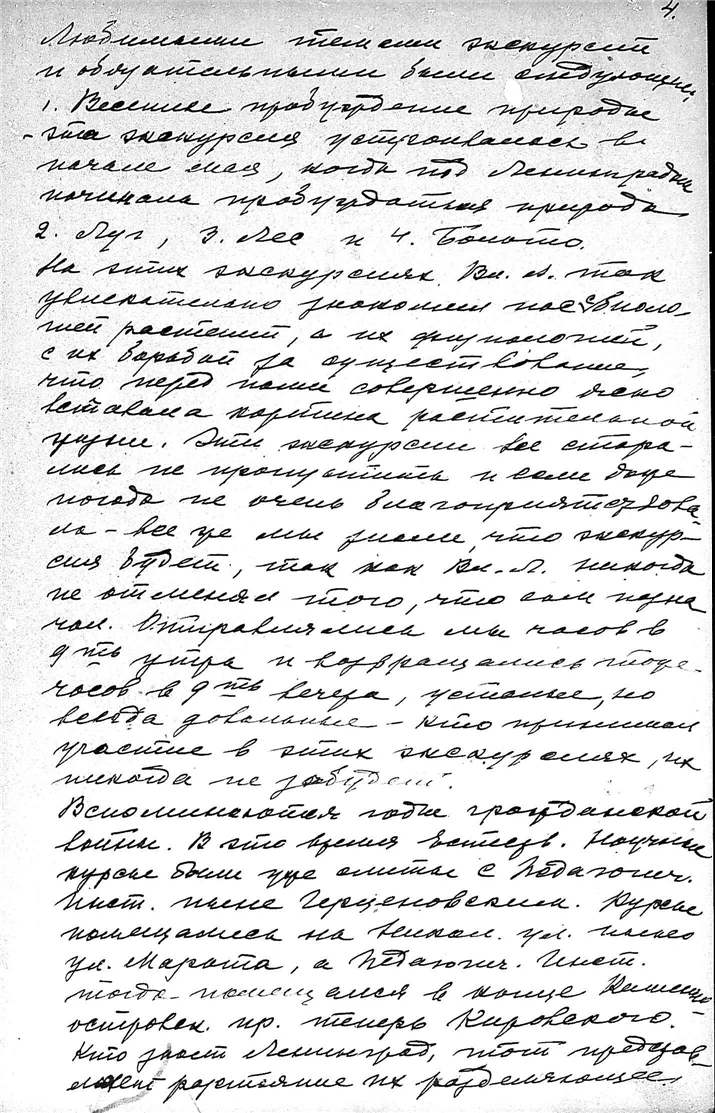 4.
Любимыми темами экскурсий
и обязательными были следующие,
1. Весеннее пробуждение природы
- эта экскурсия устраивалась в
начале мая, когда под Ленинградом
начинала пробуждаться природа
2. Луг, 3. Лес и 4. Болото.
На этих экскурсиях Вл. Л. так
увлекательно знакомил нас с биоло-
гией растений, а их физиологией,
с их борьбой за существование,
что перед нами совершенно ясно
вставала картина растительной
жизни. Эти экскурсии все стара-
лись не пропустить и если даже
погода не очень благоприятствова-
ла - все же мы знали, что экскур-
сия будет, так как Вл. Л. никогда
не отменял того, что сам назна
чал. Отправлялись мы часов в
9ть утра и возвращались тоже
часов в 9ть вечера, усталые, но
всегда довольные - кто принимал
участие в этих экскурсиях, их
никогда не забудет.
Вспоминаются годы гражданской
войны. В это время Естеств. Научные
курсы были уже слиты с Педагогич.
Инст. ныне Герценовским. Курсы
помещались на Никол. ул. ныне
ул. Марата, а Педагогич. Инст.
тогда помещался в конце Каменно
островск. пр. теперь Кировского.
Кто знает Ленинград, тот представ-
ляет расстояние их разделяющее